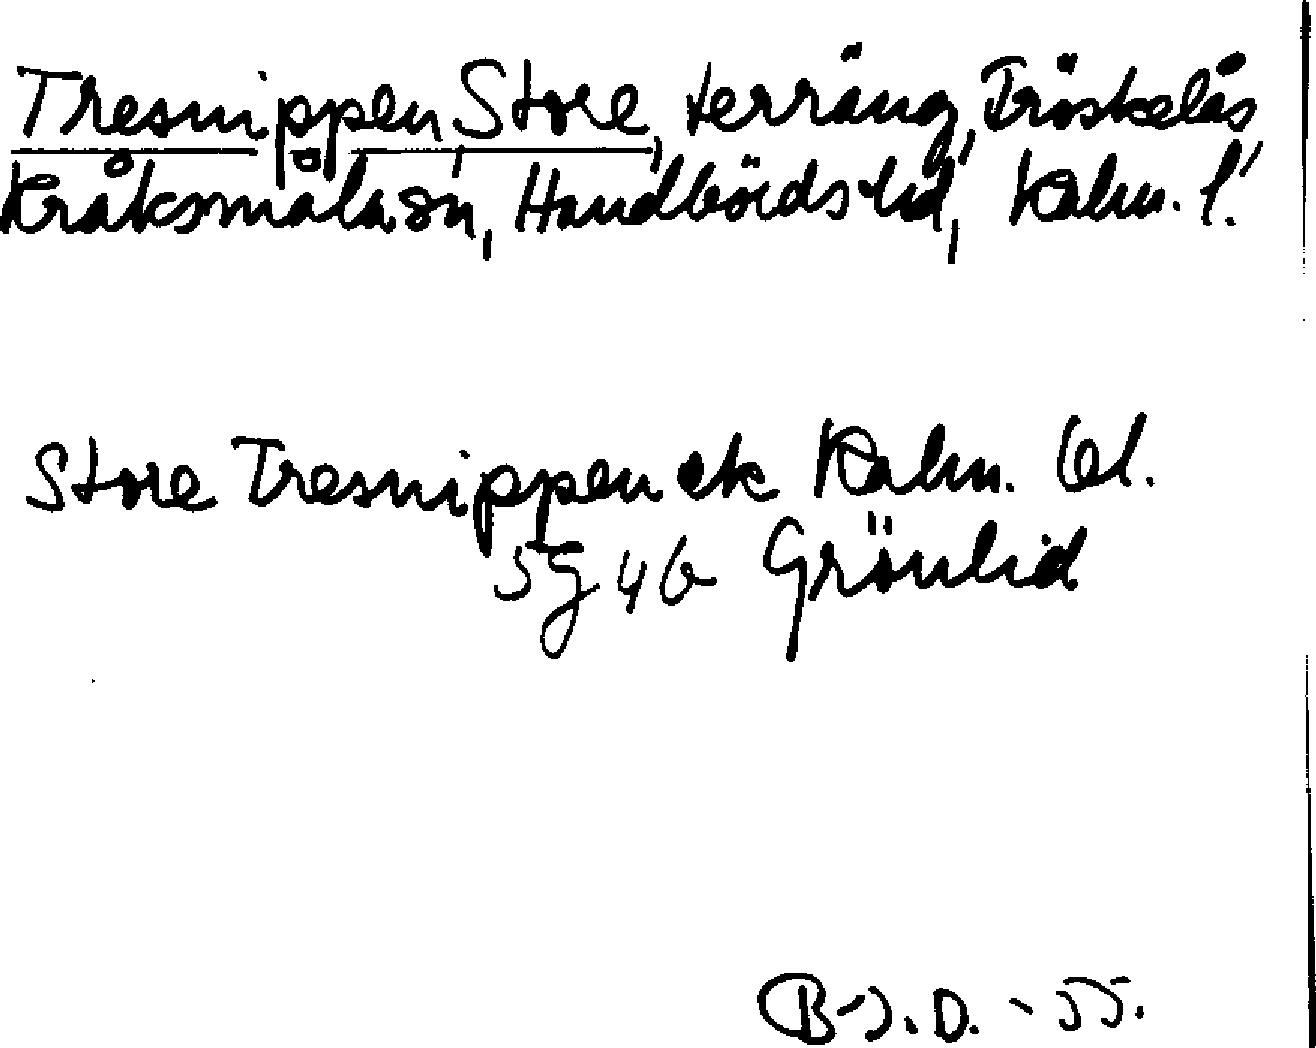 Tresnippen, Store, terräng, Tröskelås
Kråksmåla sn, Handbörds hd, Kalm. l.
Store Tresnippen ek Kalm. bl.
5g 4b Grönlid
B-J.D. - 55.